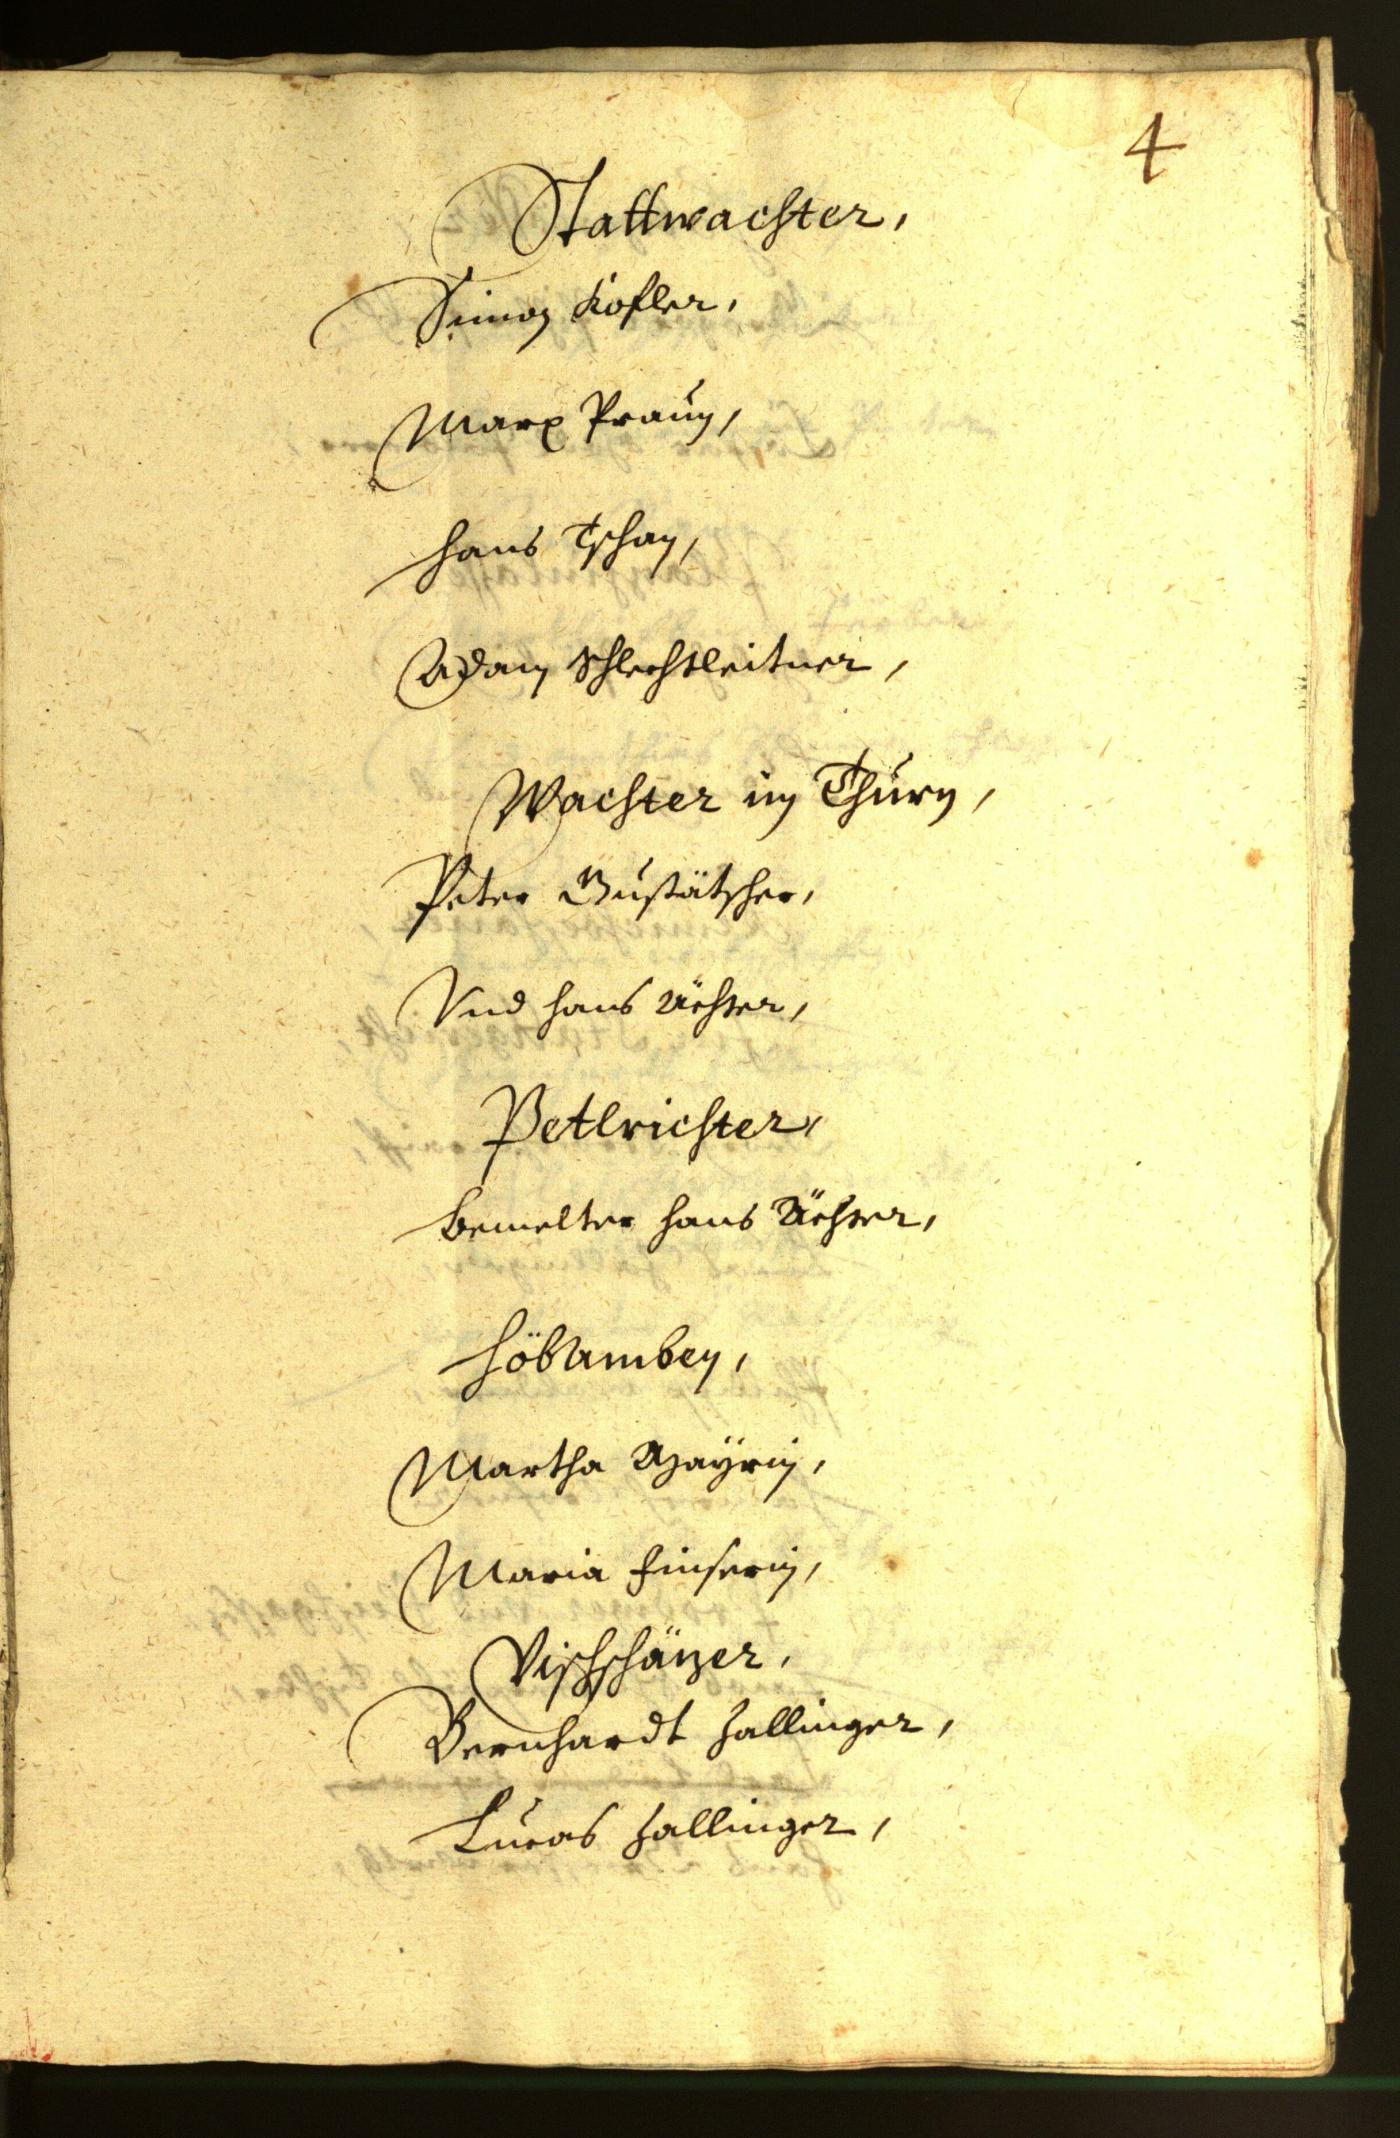 4
Stattwachter,
Simon Kofler,
Marx Praun,
Hans Tschan,
Adam Schlechtleitner,
Wachter im Thurn,
Peter Gustätscher,
Vnd Hans
Petlrichter,
Bemelter Hans
Höbamben,
Martha Mayrin,
Maria Finserin,
Vischschäzer,
Bernhardt Zallinger,
Lucas Zallinger,